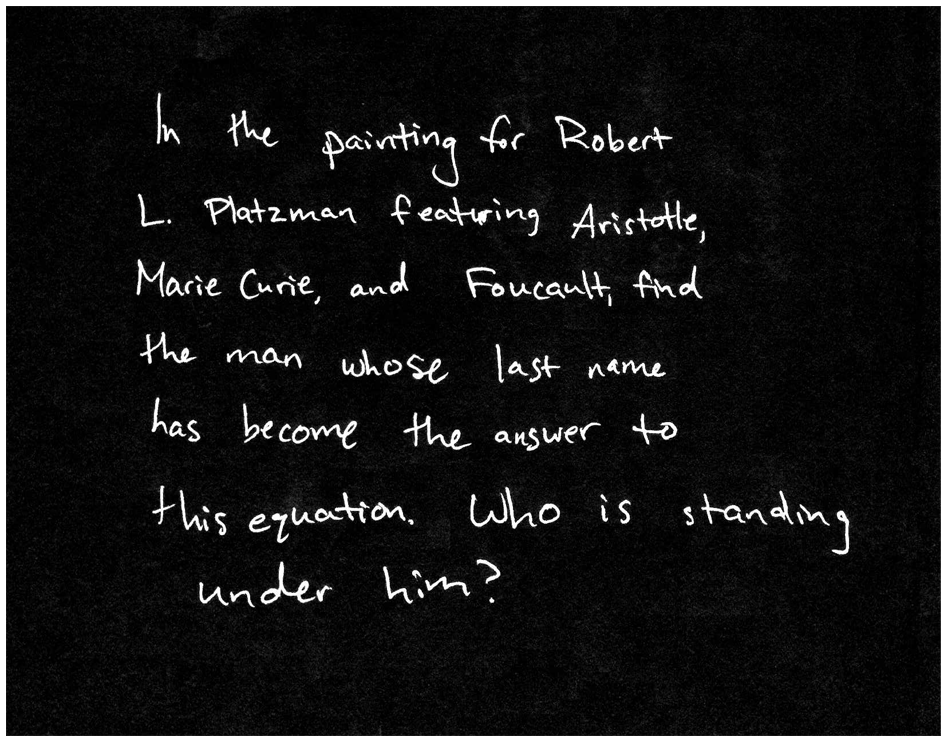 In the painting for Robert
L. Platzman featuring Aristotle,
Marie Curie, and Foucault, find
the man whose last name
has become the answer to
this equation. Who is standing
under him?